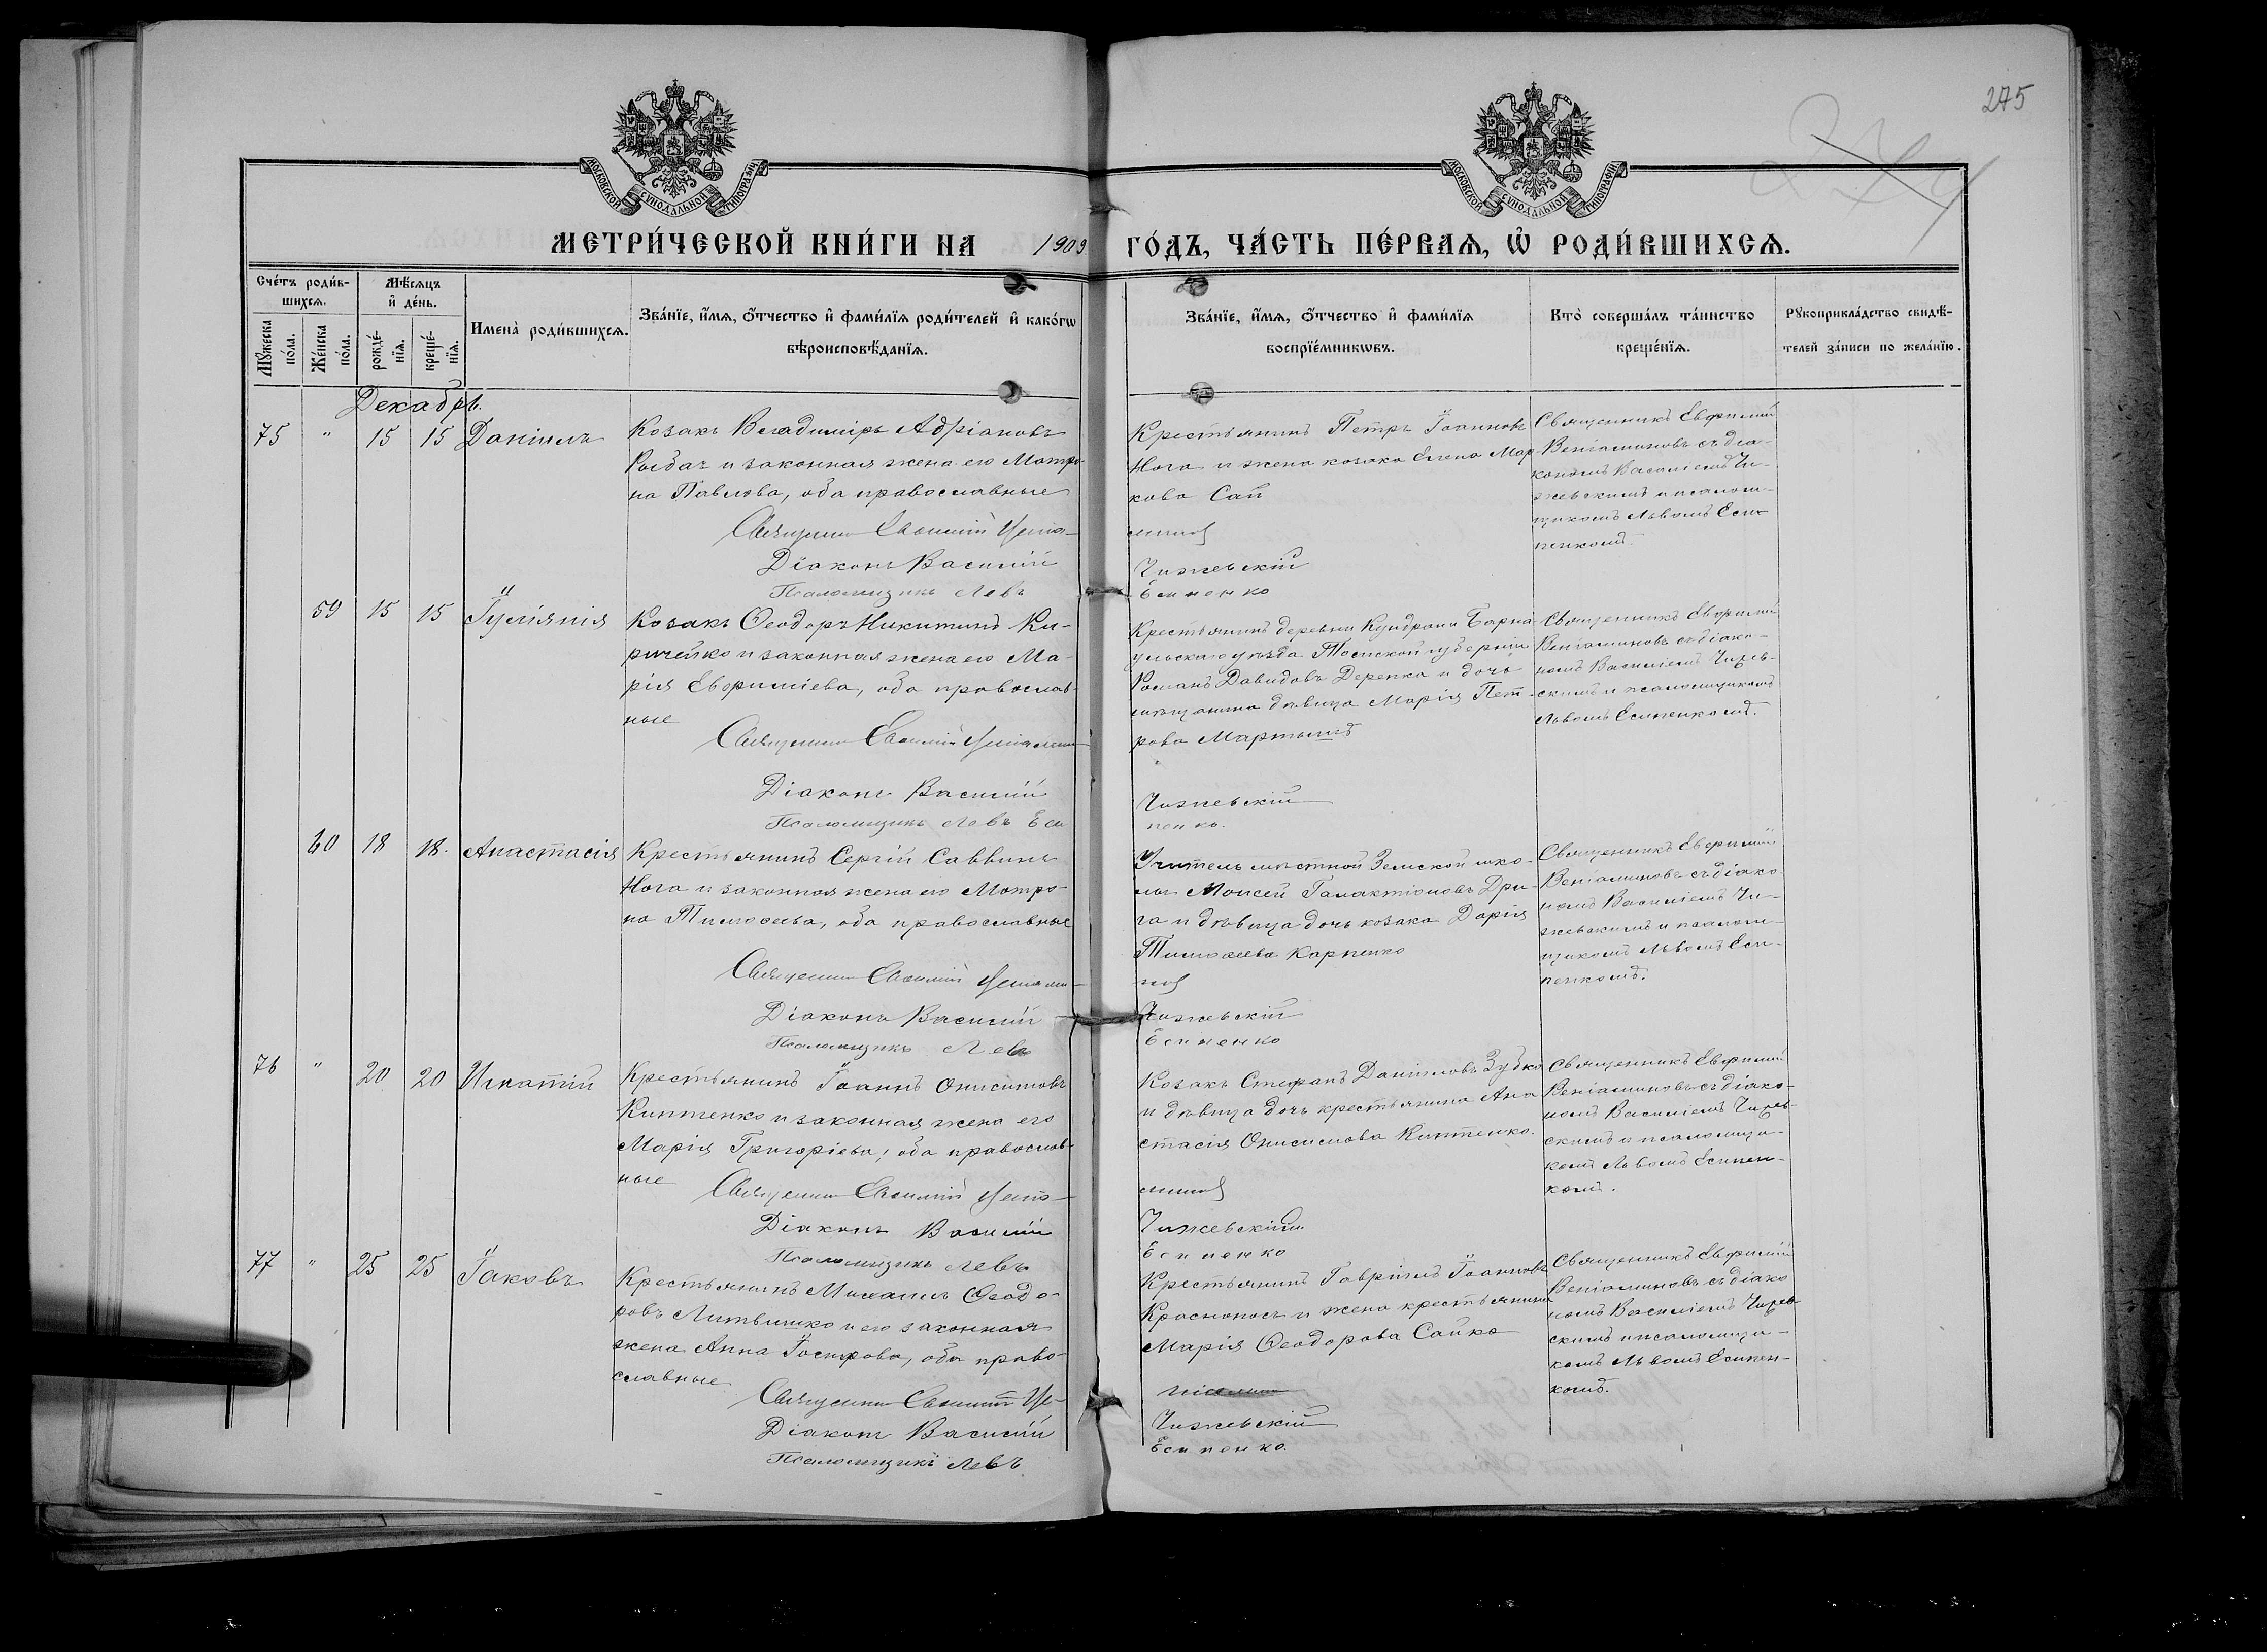 275
274
МОСКОВСКОЙ СѴНОДАЛЬНОЙ ТИПОГРАФІИ
МОСКОВСКОЙ СѴНОДАЛЬНОЙ ТИПОГРАФІИ
МЕТРИ́ЧЕСКОЙ КНИ́ГИ НА 1909 ГО́ДЪ, ЧА́СТЬ ПЕ́РВАѦ, Ѡ҆ РОДИ́ВШИХСѦ.
Сче́тъ роди́в-
шихсѧ.
Мꙋ́жеска по́ла.
Же́нска по́ла.
Мѣ́сѧцъ
и҆ де́нь.
рожде́-
нїѧ.
креще́-
нїѧ.
Имена̀ роди́вшихсѧ.
Зва́нїе, и҆́мѧ, ѻ҆́тчество и҆ фами́лїѧ роди́телей и҆ како́гѡ
вѣроисповѣ́данїѧ.
Зва́нїе, и҆́мѧ, ѻ҆́тчество и҆ фами́лїѧ
воспрїе́мникѡвъ.
Кто̀ соверша́лъ та́инство
креще́нїѧ.
Рꙋкоприкла́дство свидѣ́-
телей за́писи по жела́нїю.
Декабрь.
75 " 15 15 Даніилъ
Козакъ Владиміръ Адріановъ
Рыбач и законная жена его Матро-
на Павлова, оба православные
Священникъ Евфимій Веніа-
Діаконъ Василій
Псаломщикъ Левъ
Крестьянинъ Петръ Іоанновъ
Нога и жена козака Елена Мар-
кова Сай
миновъ
Чижевскій
Есипенко
Священникъ Евфимій
Веніаминовъ съ діа-
кономъ Василіемъ Чи-
жевскимъ и псалом-
щикомъ Львомъ Еси-
пенкомъ.
59 15 15 Іуліянія
Козакъ Ѳеодоръ Никитинъ Ки-
ричейко и законная жена его Ма-
рія Евфиміева, оба православ-
ные
Священникъ Евфимій Веніамин
Діаконъ Василій
Псаломщикъ Левъ Еси
Крестьянинъ деревни Кундрани Барна-
ульскаго уѣзда Томской губерніи
Романъ Давидовъ Деренка и дочь
мѣщанина дѣвица Марія Пет-
рова Мартынъ
Чижевскій
пенко.
Священникъ Евфимій
Веніаминовъ съ діако-
номъ Василіемъ Чижев-
скимъ и псаломщикомъ
Львомъ Есипенкомъ.
60 18 18. Анастасія
Крестьянинъ Сергій Саввинъ
Нога и законная жена его Матро-
на Тимоѳеева, оба православные
Священникъ Евфимій Веніами-
Діаконъ Василій
Псаломщикъ Левъ
Учитель мѣстной Земской шко-
лы Моисей Галактіоновъ Дри-
га и дѣвица дочь козака Дарія
Тимоѳеева Карпенко
новъ
Чижевскій
Есипенко
Священникъ Евфимій
Веніаминовъ съ діако-
номъ Василіемъ Чи-
жевскимъ и псалом-
щикомъ Львомъ Еси-
пенкомъ.
76 " 20 20 Игнатій
Крестьянинъ Іоаннъ Онисимовъ
Киптенко и законная жена его
Марія Григоріева, оба православ-
ные
Священникъ Евфимій Веніа-
Діаконъ Василій
Псаломщикъ Левъ
Козакъ Стефанъ Даніиловъ Зубко
и дѣвица дочь крестьянина Ана-
стасія Онисимова Киптенко.
миновъ
Чижевскій
Есипенко
Священникъ Евфимій
Веніаминовъ съ діако-
номъ Василіемъ Чижев-
скимъ и псаломщи-
комъ Львомъ Есипен-
комъ.
77 " 25 25 Іаковъ
Крестьянинъ Михаилъ Ѳеодо-
ровъ Литвишко и его законная
жена Анна Іосифова, оба право-
славные
Священникъ Евфимій Ве-
Діаконъ Василій
Псаломщикъ Левъ
Крестьянинъ Гавріилъ Іоанновъ
Красноносъ и жена крестьянина
Марія Ѳеодорова Сайко
Чижевскій
Есипенко.
Священникъ Евфимій
Веніаминовъ съ діако
номъ Василіемъ Чижев-
скимъ и псаломщи-
комъ Львомъ Есипен-
комъ.